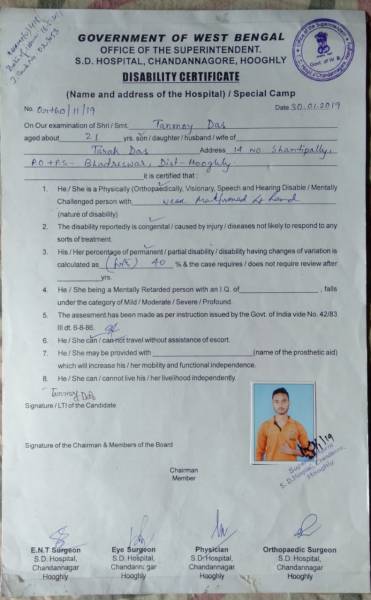 GOVERNMENT OF WEST BENGAL
OFFICE OF THE SUPERINTENDENT.
S.D. HOSPITAL, CHANDANNAGORE, HOOGHLY
DISABILITY CERTIFICATE
(Name and address of the Hospital) / Special Camp
No. Ortho/11/19 Date 30.01.2019
On Our examination of Shri / Smt. Tanmoy Das
aged about 21 yrs. son / daughter / husband / wife of
Tarak Das Address 14 No. Shantipally,
P.O+P.S- Bhadreswar, Dist-Hooghly
it is certified that :
1. He / She is a Physically (Orthopaedically, Visionary, Speech and Hearing Disable / Mentally
Challenged person with hand
(nature of disability)
2. The disability reportedly is congenital / caused by injury / diseases not likely to respond to any
sorts of treatment.
3. His / Her percentage of permanent / partial disability / disability having changes of variation is
calculated as 40 % & the case requires / does not require review after
yrs.
4. He / She being a Mentally Retarded person with an I.Q. of , falls
under the category of Mild / Moderate / Severe / Profound.
5. The assesment has been made as per instruction issued by the Govt. of India vide No. 42/83
III dt. 6-8-86.
6. He / She can / can not travel without assistance of escort.
7. He / She may be provided with (name of the prosthetic aid)
which will increase his / her mobility and functional independence.
8. He / She can / cannot live his / her livelihood independently.
Tanmoy Das
Signature / LTI of the Candidate
Signature of the Chairman & Members of the Board
S. D. Hospital, Chandannagore,
Hooghly
Chairman
Member
E.N.T Surgeon Eye Surgeon Physician Orthopaedic Surgeon
S.D. Hospital, S.D. Hospital, S.D. Hospital, S.D. Hospital,
Chandannagar Chandannagar Chandannagar Chandannagar
Hooghly Hooghly Hooghly Hooghly